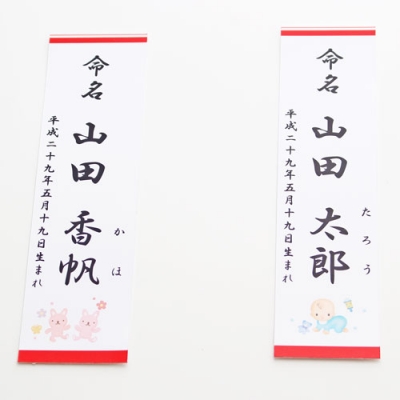 命名
山田 香帆
かほ
平成二十九年五月十九日生まれ
命名
山田 太郎
たろう
平成二十九年五月十九日生まれ